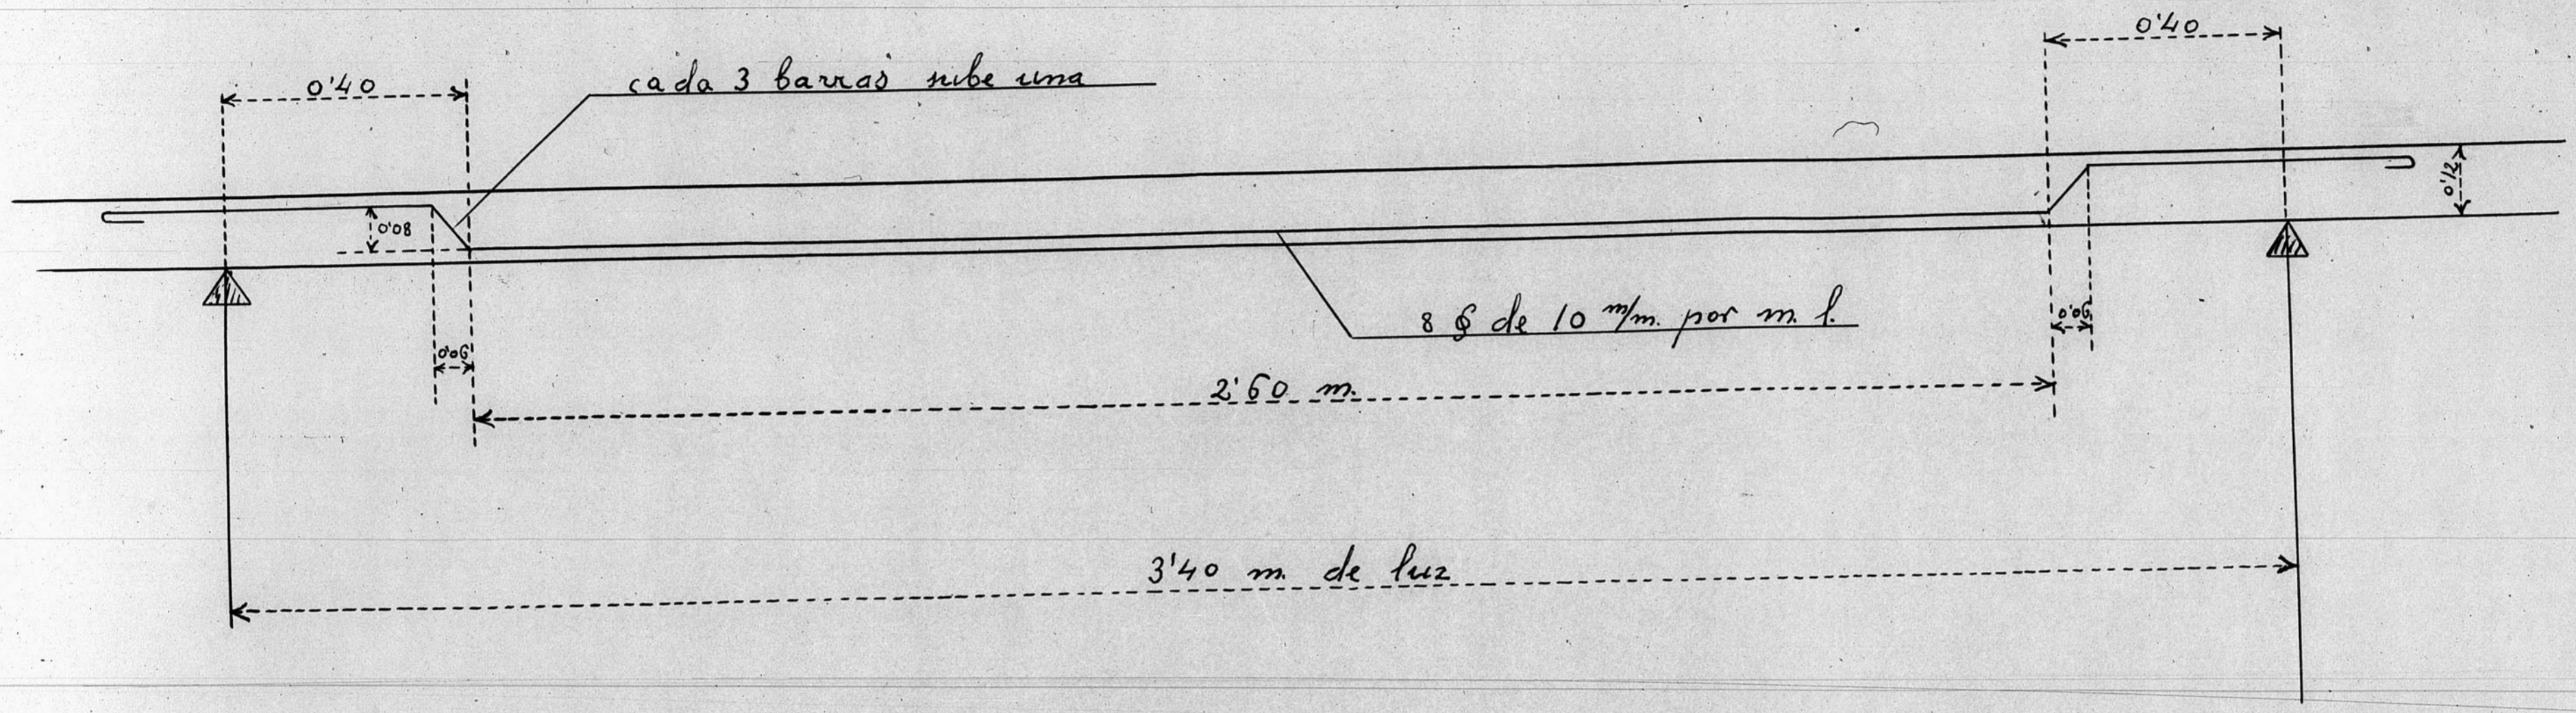 0'40
0'40
cada 3 barras sube una
0'08
0'12
8 ϕ de 10 m/m. por m. l.
0'06
0'06
2'60 m.
3'40 m. de luz